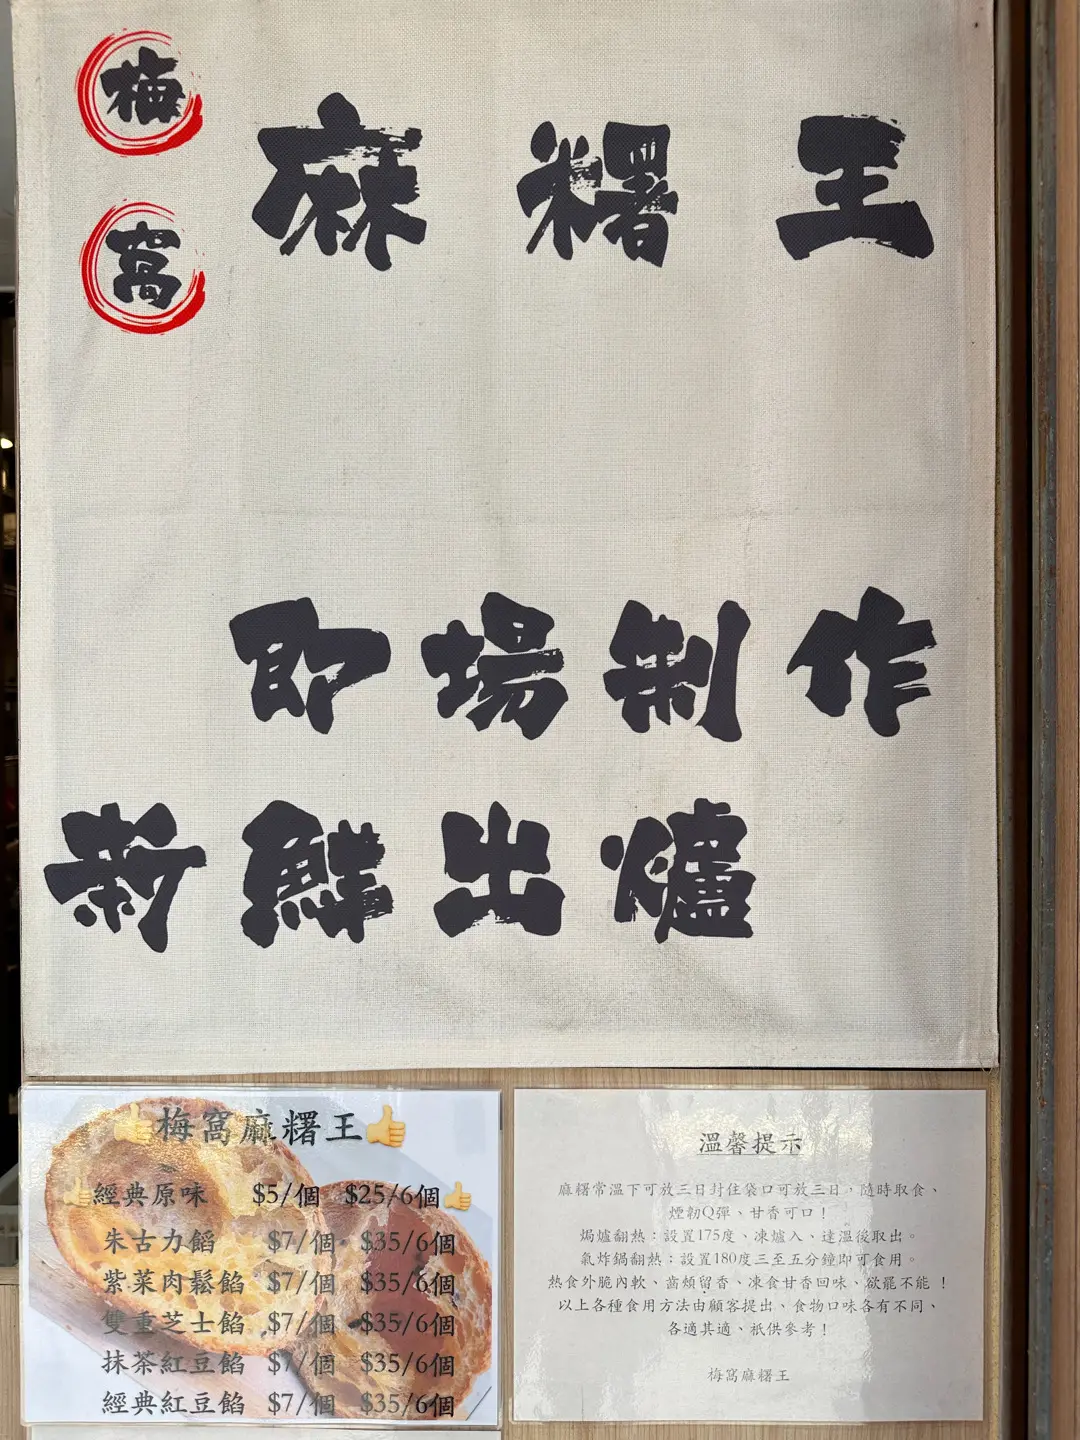 梅窩
麻糬王
即場制作
新鮮出爐
👍梅窩麻糬王👍
👍經典原味 $5/個 $25/6個👍
朱古力餡 $7/個 $35/6個
紫菜肉鬆餡 $7/個 $35/6個
雙重芝士餡 $7/個 $35/6個
抹茶紅豆餡 $7/個 $35/6個
經典紅豆餡 $7/個 $35/6個
溫馨提示
麻糬常溫下可放三日封住袋口可放三日，隨時取食、
煙韌Q彈、甘香可口！
焗爐翻熱：設置175度、凍爐入、達溫後取出。
氣炸鍋翻熱：設置180度三至五分鐘即可食用。
熱食外脆內軟、齒頰留香、凍食甘香回味、欲罷不能！
以上各種食用方法由顧客提出、食物口味各有不同、
各適其適、祇供參考！
梅窩麻糬王